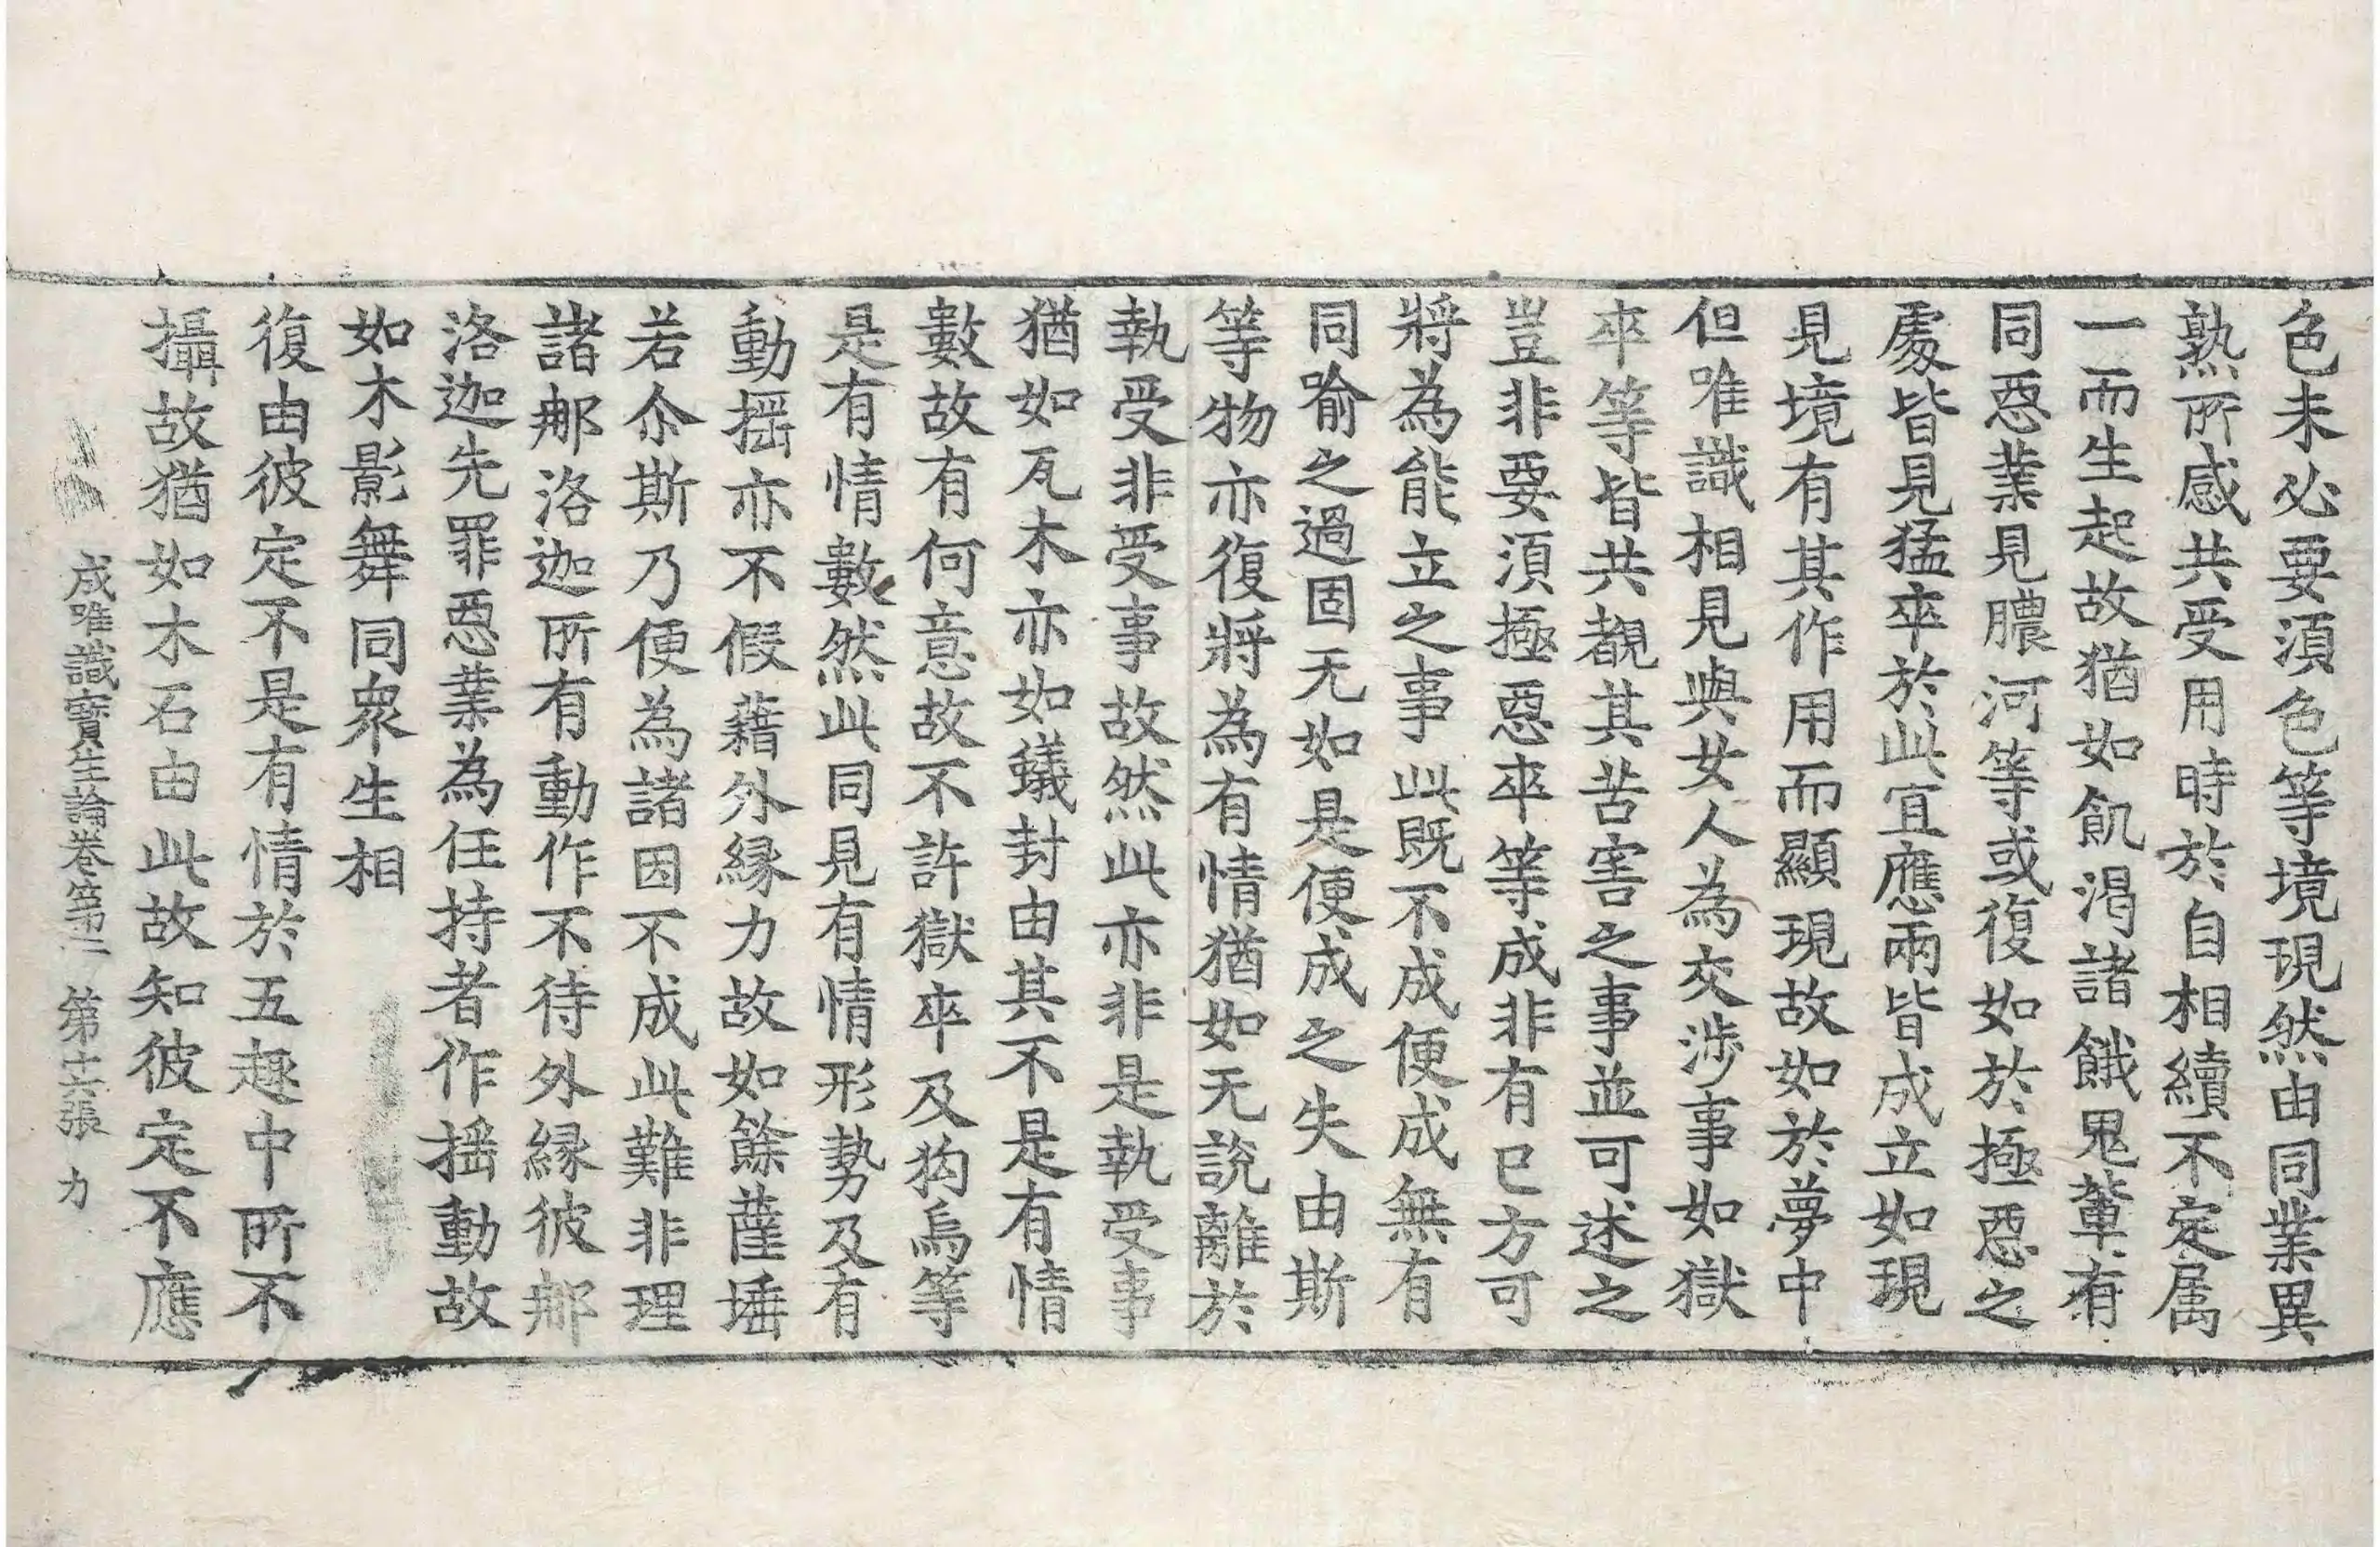 色未必要湏色等境現然由同業異
熟所感共受用時於自相續不定属
一而生起故猶如飢渴諸餓鬼軰有
同惡業見膿河等或復如於極惡之
處皆見猛卒於此宜應兩皆成立如現
見境有其作用而顯現故如於夢中
但唯識相見與女人為交涉事如獄
卒等皆共覩其苦害之事並可述之
豈非要湏極惡卒等成非有已方可
將為能立之事此既不成便成無有
同喻之過固无如是便成之失由斯
等物亦復將為有情猶如无說離於
執受非受事故然此亦非是執受事
猶如瓦木亦如蟻封由其不是有情
數故有何意故不許獄卒及狗烏等
是有情數然此同見有情形勢及有
動揺亦不假藉外縁力故如餘薩埵
若尒斯乃便為諸因不成此難非理
諸那洛迦所有動作不待外縁彼那
洛迦先罪惡業為任持者作揺動故
如木影舞同衆生相
復由彼定不是有情於五趣中所不
攝故猶如木石由此故知彼定不應
成唯識寶生論卷第二 第十六張 力